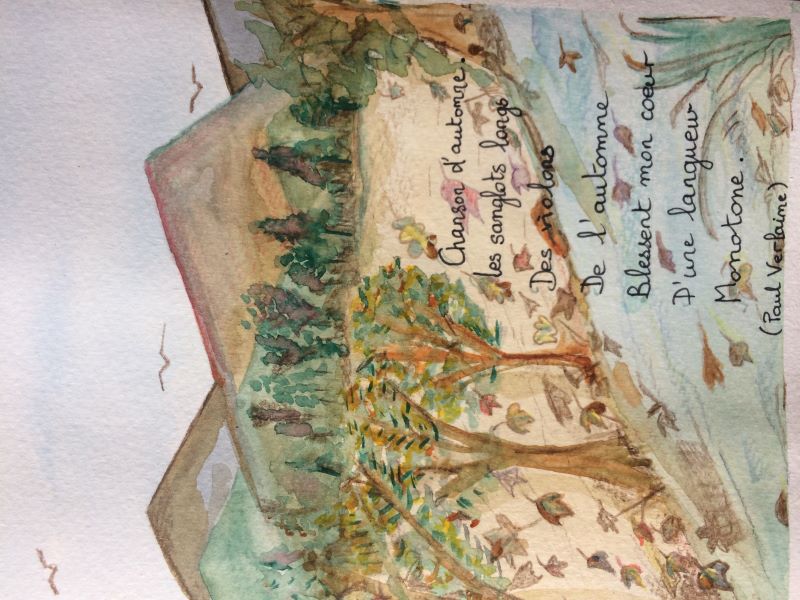 Chanson d'automne.
les sanglots longs
Des violons
De l'automne
Blessent mon coeur
D'une langueur
Monotone.
(Paul Verlaine)